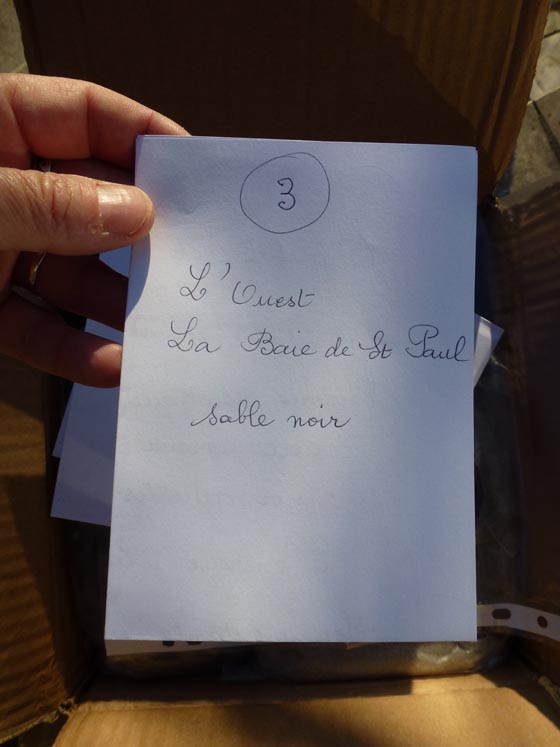 3
L'Ouest
La Baie de St Paul
sable noir